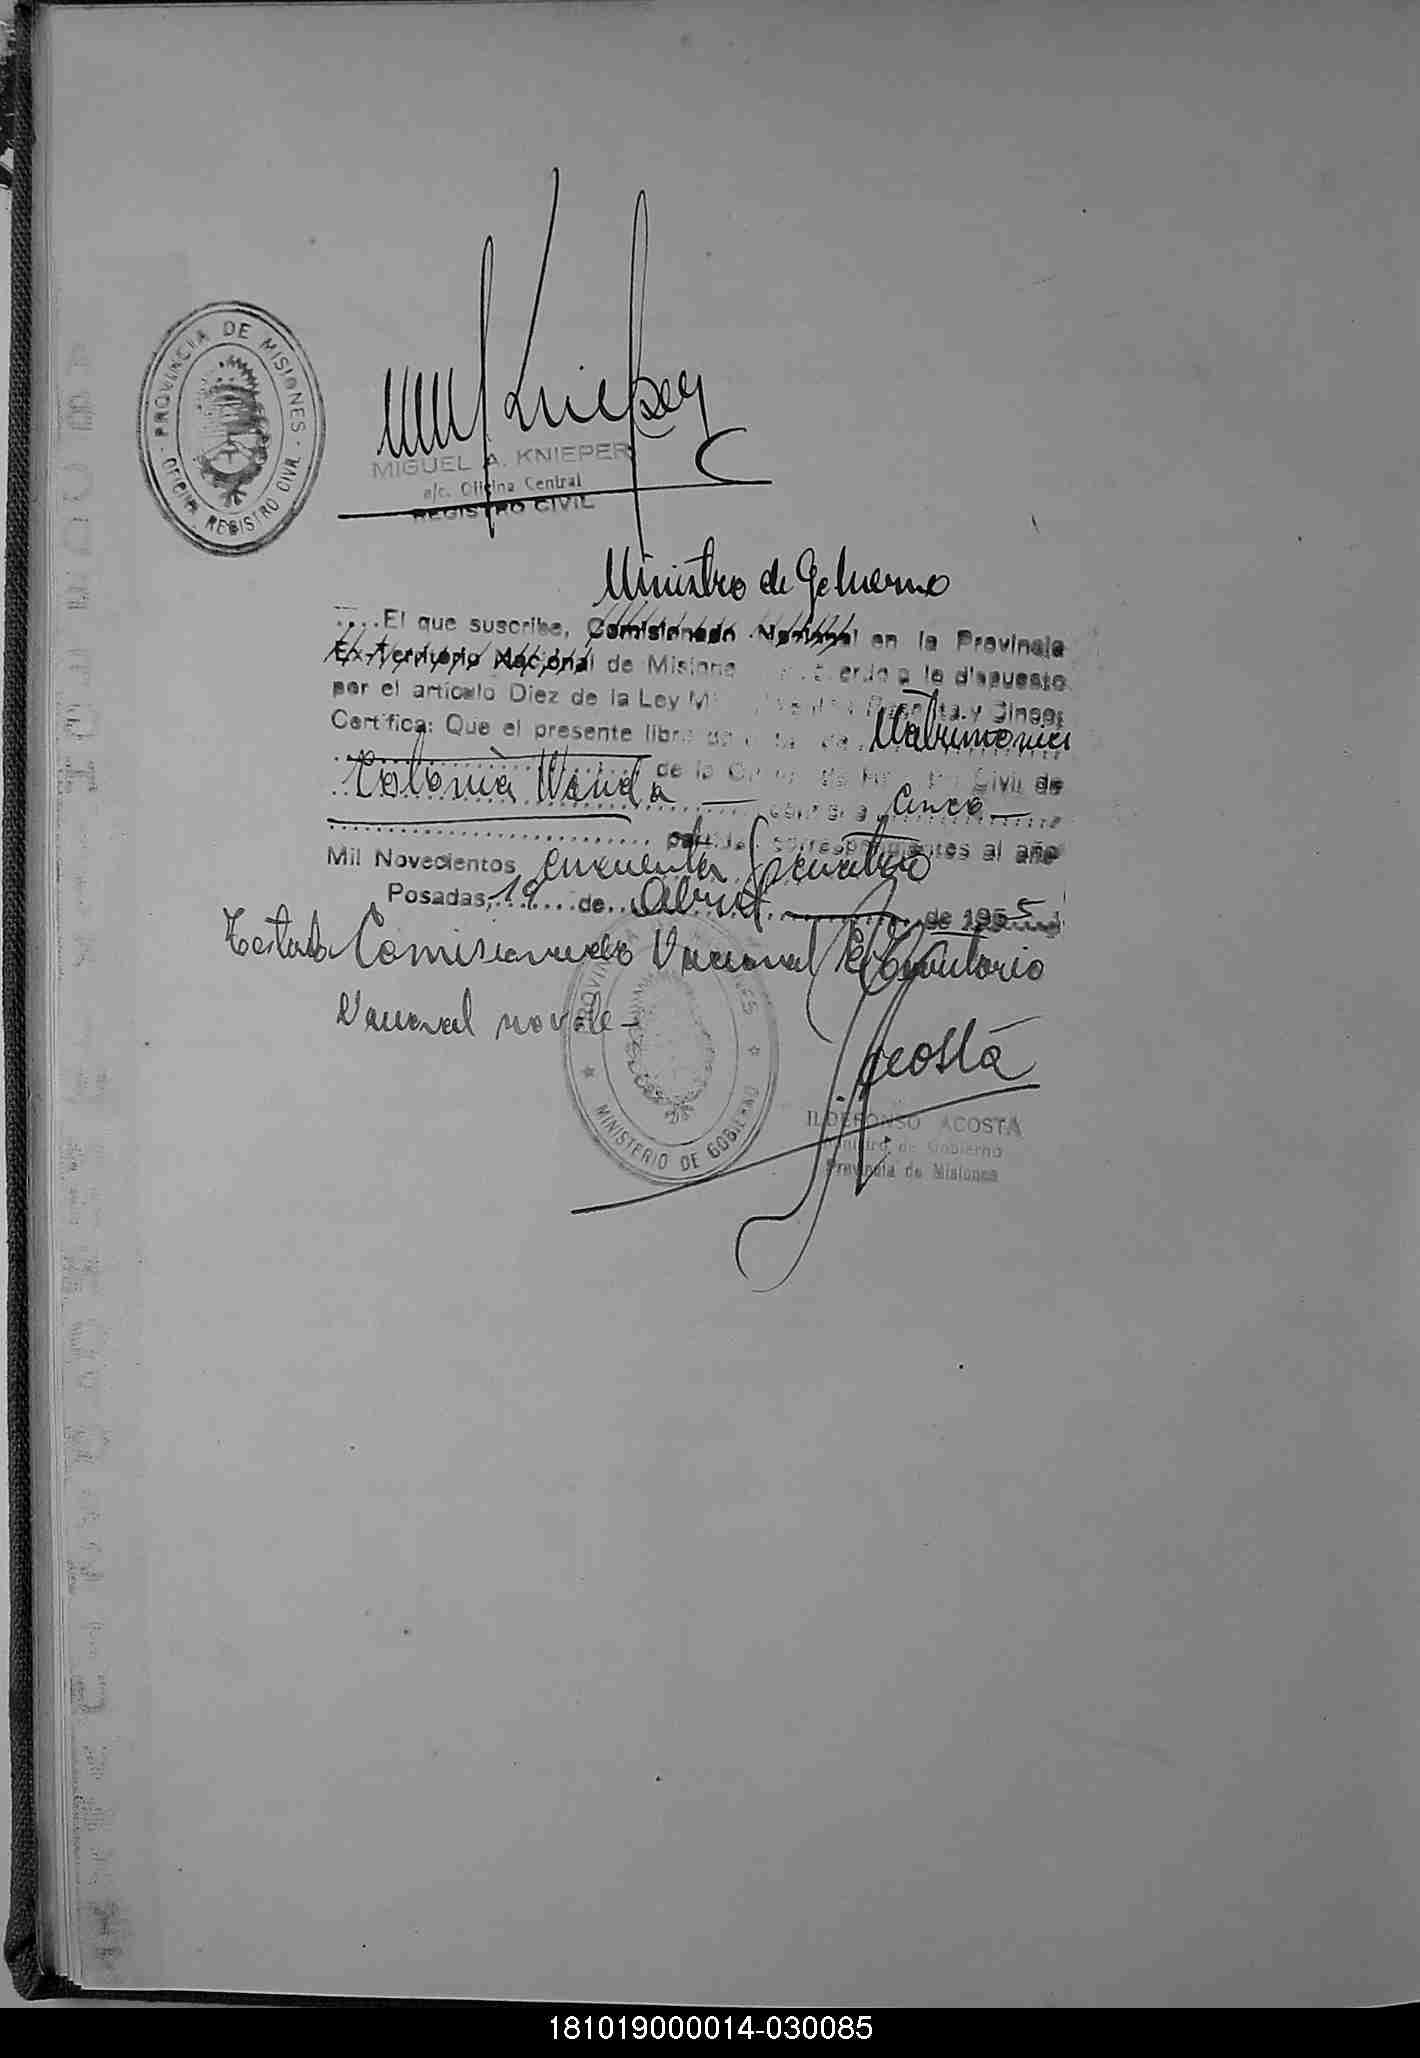 PROVINCIA DE MISIONES
OFICINA REGISTRO CIVIL
MKnieper
MIGUEL A. KNIEPER
a/c. Oficina Central
REGISTRO CIVIL
Ministro de Gobierno
....El que suscribe, Comisionado Nacional en la Provincia
Ex-Territorio Nacional de Misiones erdo a lo dispuesto
por el artículo Diez de la Ley y Cinco;
Certifica: Que el presente libro de Matrimonios
Colonia Wanda de la Civil de
cinco
partidas correspondientes al año
Mil Novecientos cincuenta y cuatro
Posadas, 19 de Abril de 1955
Testado Comisionado Nacional Ex Territorio
Nacional no vale
Acosta
PROVINCIA DE MISIONES
MINISTERIO DE GOBIERNO
ILDEFONSO ACOSTA
Ministro de Gobierno
Provincia de Misiones
181019000014-030085